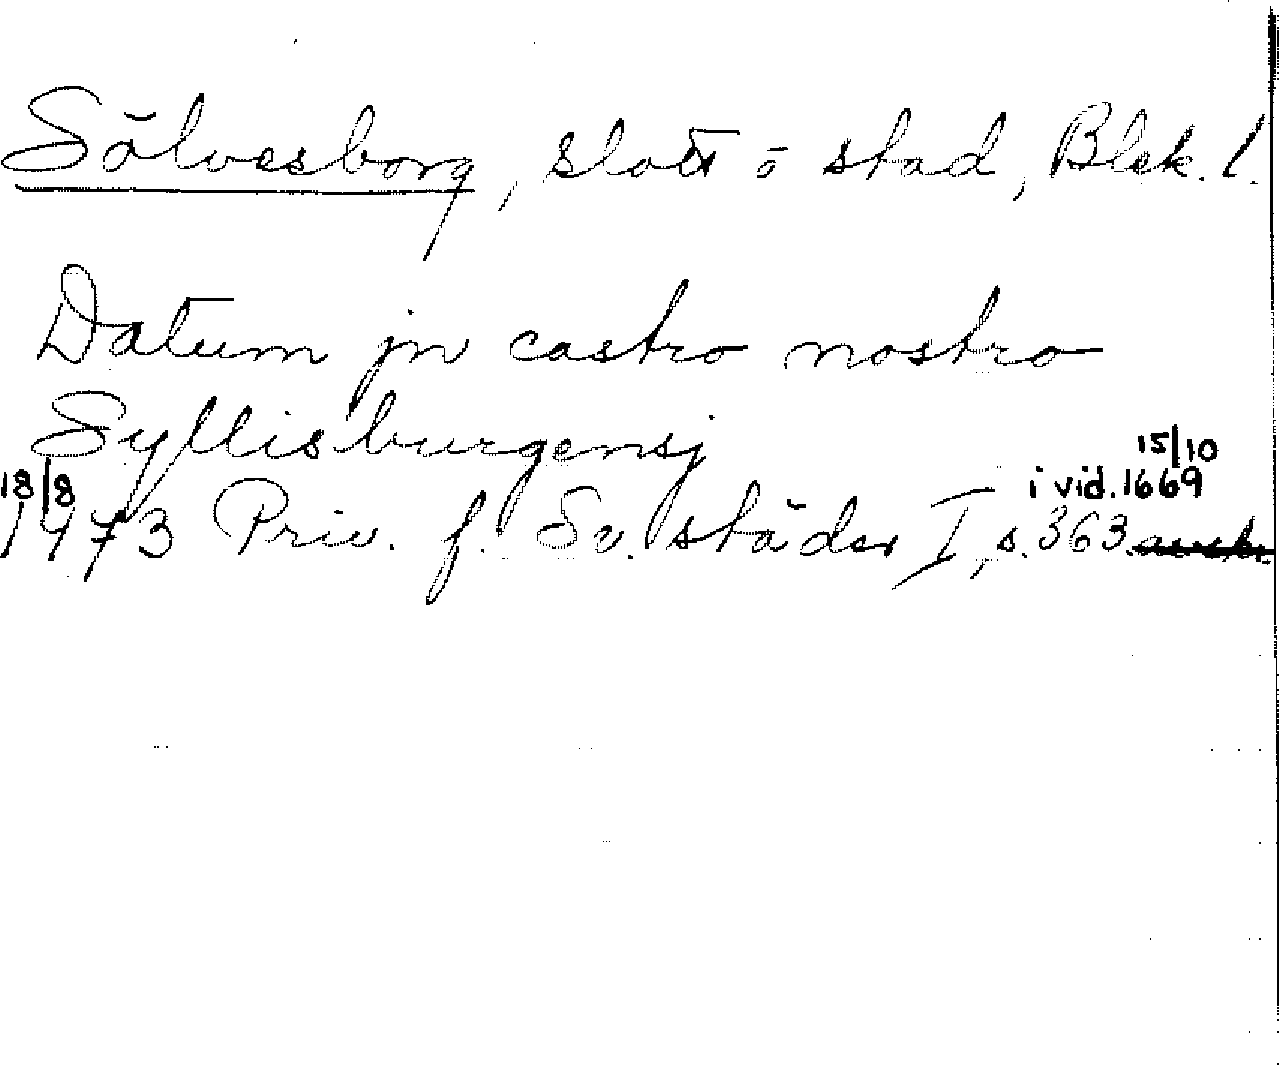 Sölvesborg, slott o stad, Blek. l.
Datum jn castro nostro
Syllisburgensj
15/10
18/8 i vid. 1669
1473 Priv. f. Sv. städer I, s. 363.